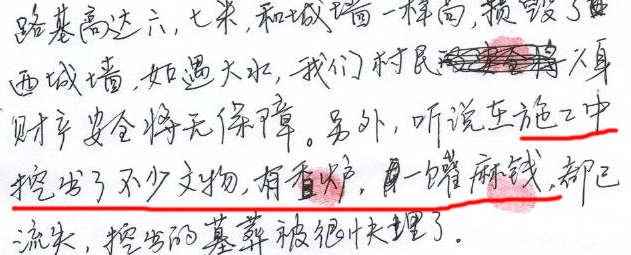 路基高达六,七米,和城墙一样高,损毁了
西城墙,如遇大水,我们村民人身
财产安全将无保障。另外,听说在施工中
挖出了不少文物,有香炉,一罐麻钱,都已
流失,挖出的墓葬被很快埋了。